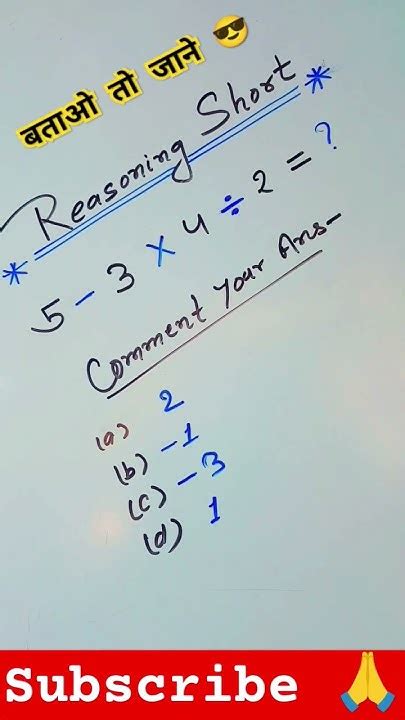 बताओ तो जाने 😎
* Reasoning Short *
5 - 3 × 4 ÷ 2 = ?
Comment Your Ans-
(a) 2
(b) -1
(c) -3
(d) 1
Subscribe 🙏